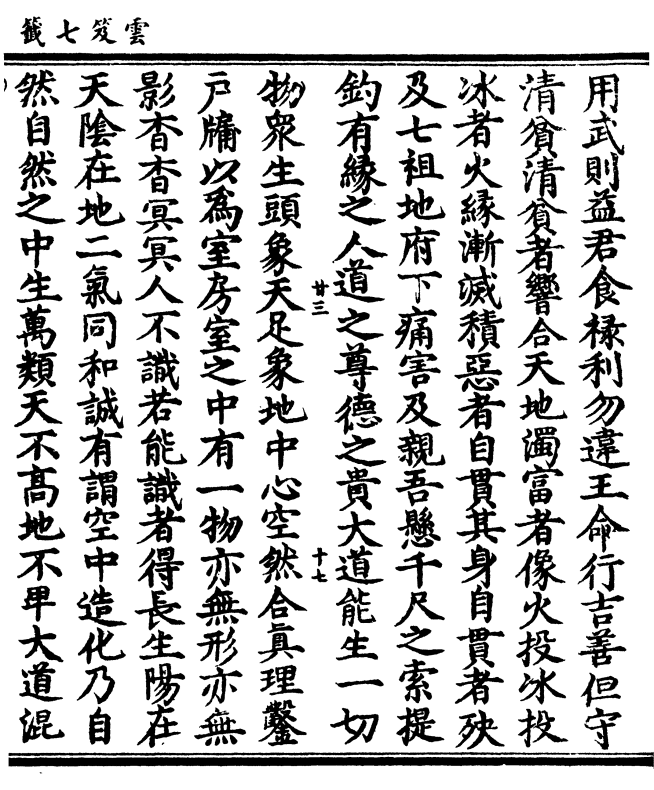 雲笈七籤
用武則益君食祿利勿違王命行吉善但守
清貧清貧者響合天地濁富者像火投冰投
冰者火緣漸滅積惡者自貫其身自貫者殃
及七祖地府下痛害及親吾懸千尺之索提
釣有緣之人道之尊德之貴大道能生一切
廿三
十七
物衆生頭象天足象地中心空然合眞理鑿
戸牖以爲室房室之中有一物亦無形亦無
影杳杳冥冥人不識若能識者得長生陽在
天陰在地二氣同和誠有謂空中造化乃自
然自然之中生萬類天不高地不卑大道混